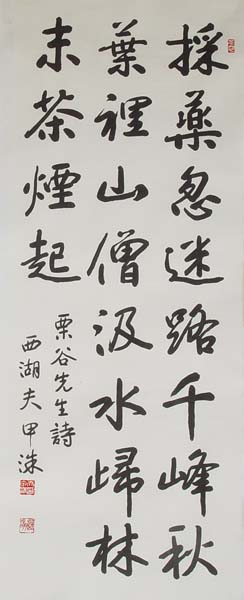 採藥忽迷路千峰秋
葉裡山僧汲水歸林
末茶煙起
栗谷先生詩
西湖夫甲洙